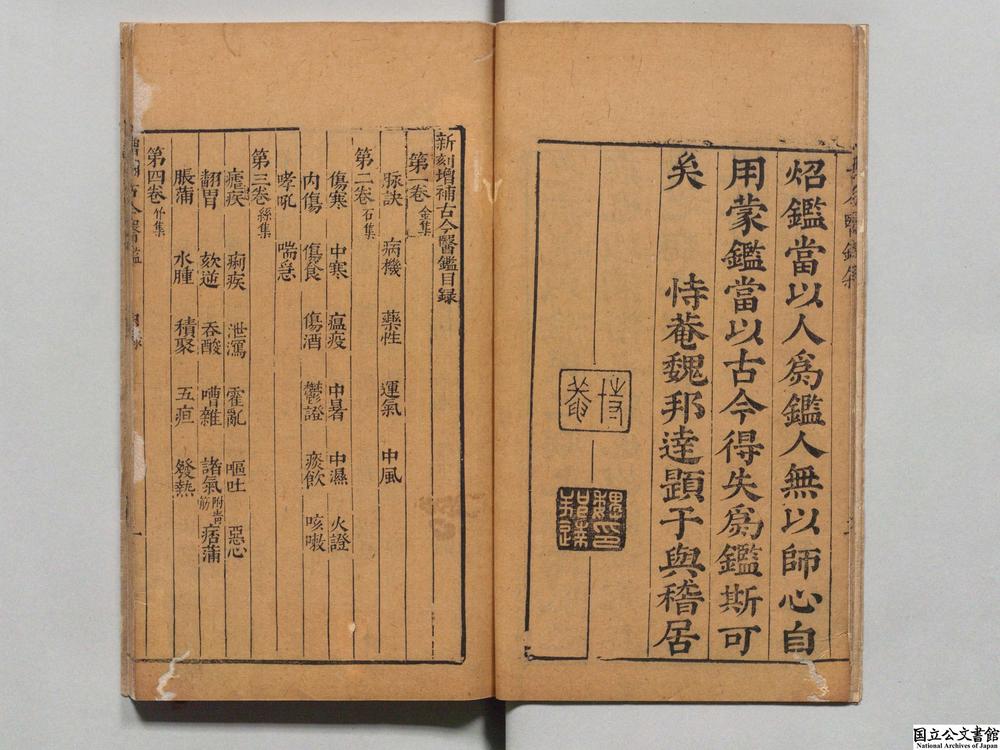 炤鑑當以人爲鑑人無以師心自
用蒙鑑當以古今得失爲鑑斯可
矣
恃菴魏邦達題于與稽居
恃菴
魏邦達印
新刻增補古今醫鑑目録
第一卷 金集
脉訣 病機 藥性 運氣 中風
第二卷 石集
傷寒 中寒 瘟疫 中暑 中濕 火證
内傷 傷食 傷酒 鬱證 痰飲 咳嗽
哮吼 喘急
第三卷 絲集
瘧疾 痢疾 泄瀉 霍亂 嘔吐 惡心
翻胃 欬逆 吞酸 嘈雜 諸氣 附青筋 痞蒲
脹蒲 水腫 積聚 五疸 發熱
第四卷 竹集
国立公文書館
National Archives of Japan